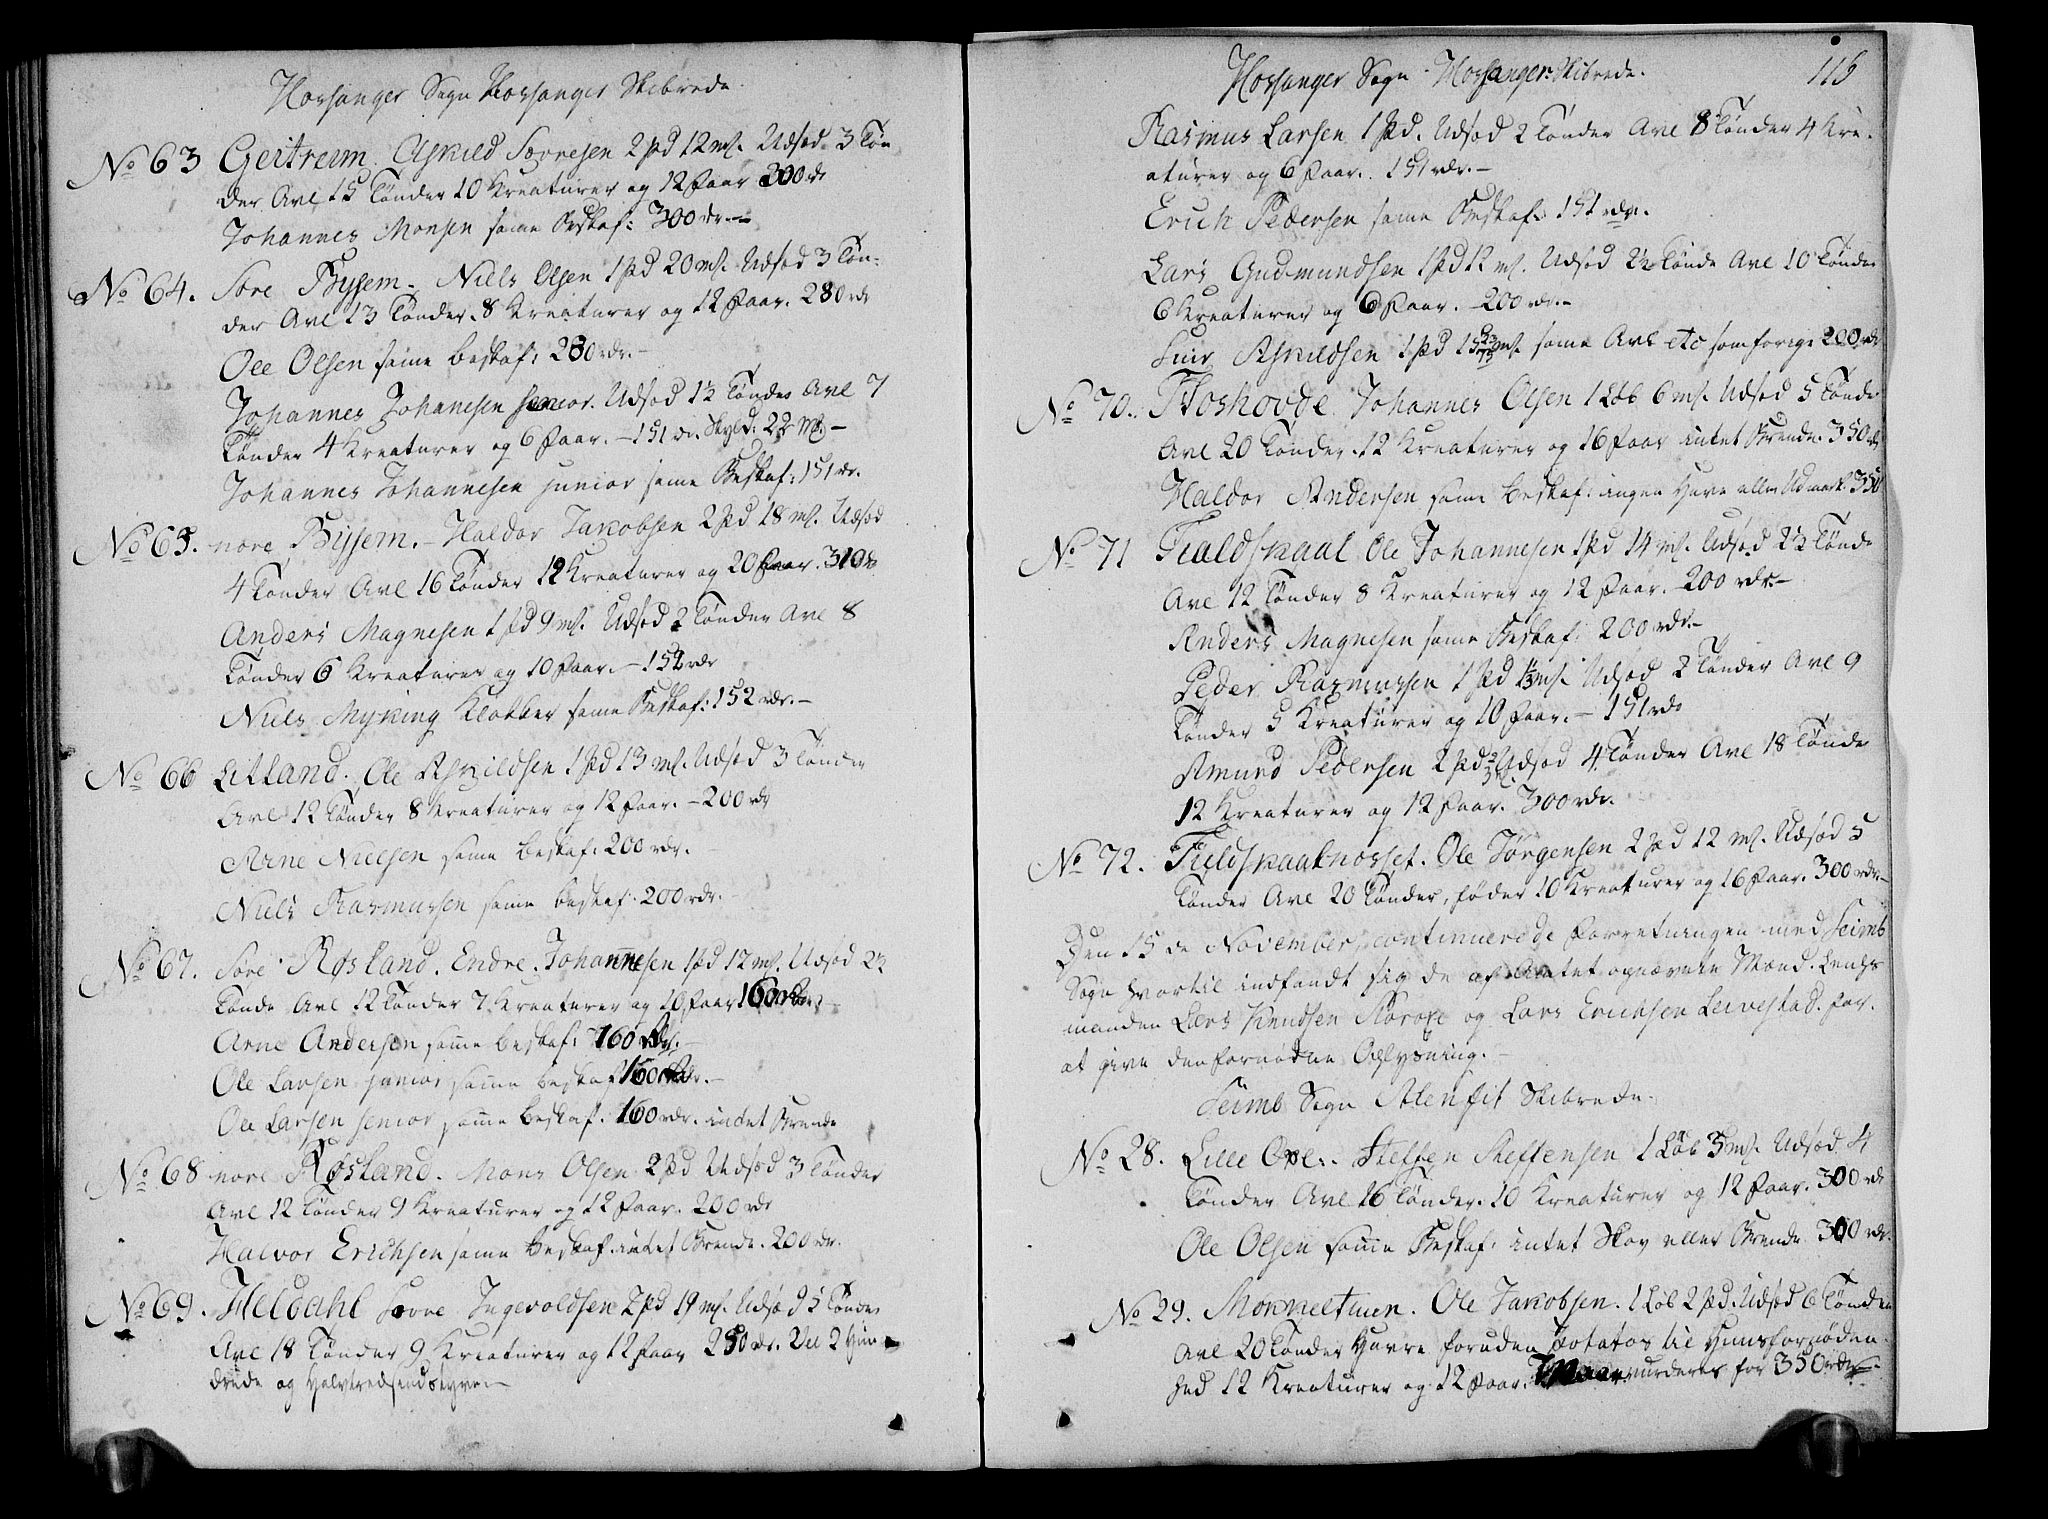 Hossanger Sogn Hossanger Skibrede.
No 63 Geitreim. Askild Sorresen 2 pd 12 mk. Udsød 3 Tøn
der Avl 15 Tønder 10 Kreaturer og 12 Faar 200 rdr
Johannes Monsen same Beskaf: 300 rdr.—
No 64. Søre Byssem. Niels Olsen 1 pd 20 mk. Udsød 3 Tøn-
der Avl 13 Tønder. 8 Kreaturer og 12 Faar. 280 rdr
Ole Olsen same beskaf: 280 rdr.—
Johannes Johanesen senior. Udsød 1½ Tønder Avl 7
Tønder 4 Kreaturer og 6 Faar. — 151 rdr. Skyld: 22 mk.—
Johannes Johannesen junior same Beskaf: 151 rdr.
No 65. nore Byssem. — Haldor Jakobsen 2 pd 18 mk. Udsød
4 Tønder Avl 16 Tønder 12 Kreaturer og 20 Faar. 310 rdr
Anders Magnesen 1 pd 9 mk. Udsød 2 Tønder Avl 8
Tønder 6 Kreaturer og 10 Faar. — 152 rdr
Niels Myking Klokker same Beskaf: 152 rdr.—
No 66 Litland. Ole Askildsen 1 pd 13 mk. Udsød 3 Tønder
Avl 12 Tønder 8 Kreaturer og 12 Faar. — 200 rdr
Arne Nielsen same beskaf: 200 rdr.
Niels Rasmussen same beskaf: 200 rdr.
No 67. Søre Røsland. Endre Johannesen 1 pd 12 mk. Udsød 2½
Tønde Avl 12 Tønder 7 Kreaturer og 10 Faar 160 rdr.—
Arne Andersen same beskaf: 160 rdr.—
Ole Larsen junior same beskaf 160 rdr.—
Ole Larsen senior same beskaf. 160 rdr. intet Brende
No 68 nore Røsland. Mons Olsen 2 pd Udsød 3 Tønder
Avl 12 Tønder 9 Kreaturer og 12 Faar. 200 rdr
Halvor Erichsen same beskaf. intet Brende. 200 rdr.
No 69. Heldahl Sorre Ingevoldsen 2 pd 19 mk. Udsød 5 Tønder
Avl 18 Tønder 9 Kreaturer og 12 Faar 250 rdr. 2 Hun-
drede og Halvtredsindstyve.—
Hossanger Sogn Hossanger Skibrede.
115
Rasmus Larsen 1 pd. Udsød 2 Tønder Avl 8 Tønder 4 Kre-
aturer og 6 Faar. 151 rdr.—
Erich Pedersen same Beskaf. 151 rdr.
Lars Gudmundsen 1 pd 12 mk. Udsød 2½ Tønde Avl 10 Tønder
6 Kreaturer og 6 Faar. — 200 rdr.—
Siur Askildsen 1 pd 15 mk. same Avl etc som forige 200 rdr
No 70. Floshovde. Johannes Olsen 1 Løb 6 mk. Udsød 5 Tønder
Avl 20 Tønder. 12 Kreaturer og 16 Faar intet Brende. 350 rdr
Haldor Andersen same beskaf: ingen Have eller Udmark. 350
No 71 Fieldskaal Ole Johannesen 1 pd 14 mk. Udsød 2½ Tønde
Avl 12 Tønder 8 Kreaturer og 12 Faar. 200 rdr.—
Anders Magnesen same Beskaf: 200 rdr.—
Peder Rasmussen 1 pd 1⅓ mk. Udsød 2 Tønder Avl 9
Tønder 5 Kreaturer og 10 Faar. — 151 rdr
Amund Pedersen 2 pd ⅔ Udsød 4 Tønder Avl 18 Tønder
12 Kreaturer og 12 Faar. 300 rdr.
No 72. Fieldskaalnæsset. Ole Jørgensen 2 pd 12 mk. Udsød 5
Tønder Avl 20 Tønder, føder 10 Kreaturer og 16 Faar. 300 rdr.—
Den 15de November, continuerede Forretningen med Seimb
Sogn hvortil indfandt sig de af Amtet opnævnte Mænd. Lends-
manden Lars Knudsen og Lars Erichsen Leivestad. for
at give den fornødne Oplysning.—
Seimb Sogn Alenfit Skibrede.
No 28. Lille Oxe. Steffen Steffensen 1 Løb 3 mk. Udsød 4
Tønder Avl 16 Tønder. 10 Kreaturer og 12 Faar. 300 rdr
Ole Olsen same Beskaf: intet Skov eller Brende 300 rdr.
No 29. Monkeltuen. Ole Jakobsen. 1 Løb 2 pd. Udsød 6 Tønder
Avl 20 Tønder Havre foruden Potatos til Huusfornøden-
hed 12 Kreaturer og 12 Faar. vurderes for 350 rdr.